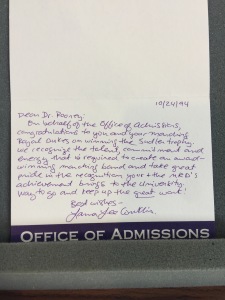 10/24/94
Dear Dr. Rooney,
On behalf of the Office of Admissions,
congratulations to you and your marching
Royal Dukes on winning the Sudler trophy.
We recognize the talent, commitment and
energy that is required to create an award-
winning marching band and take great
pride in the recognition your & the MRD's
achievement brings to the University.
Way to go and keep up the great work!
Best wishes -
Laura Lee
OFFICE OF ADMISSIONS